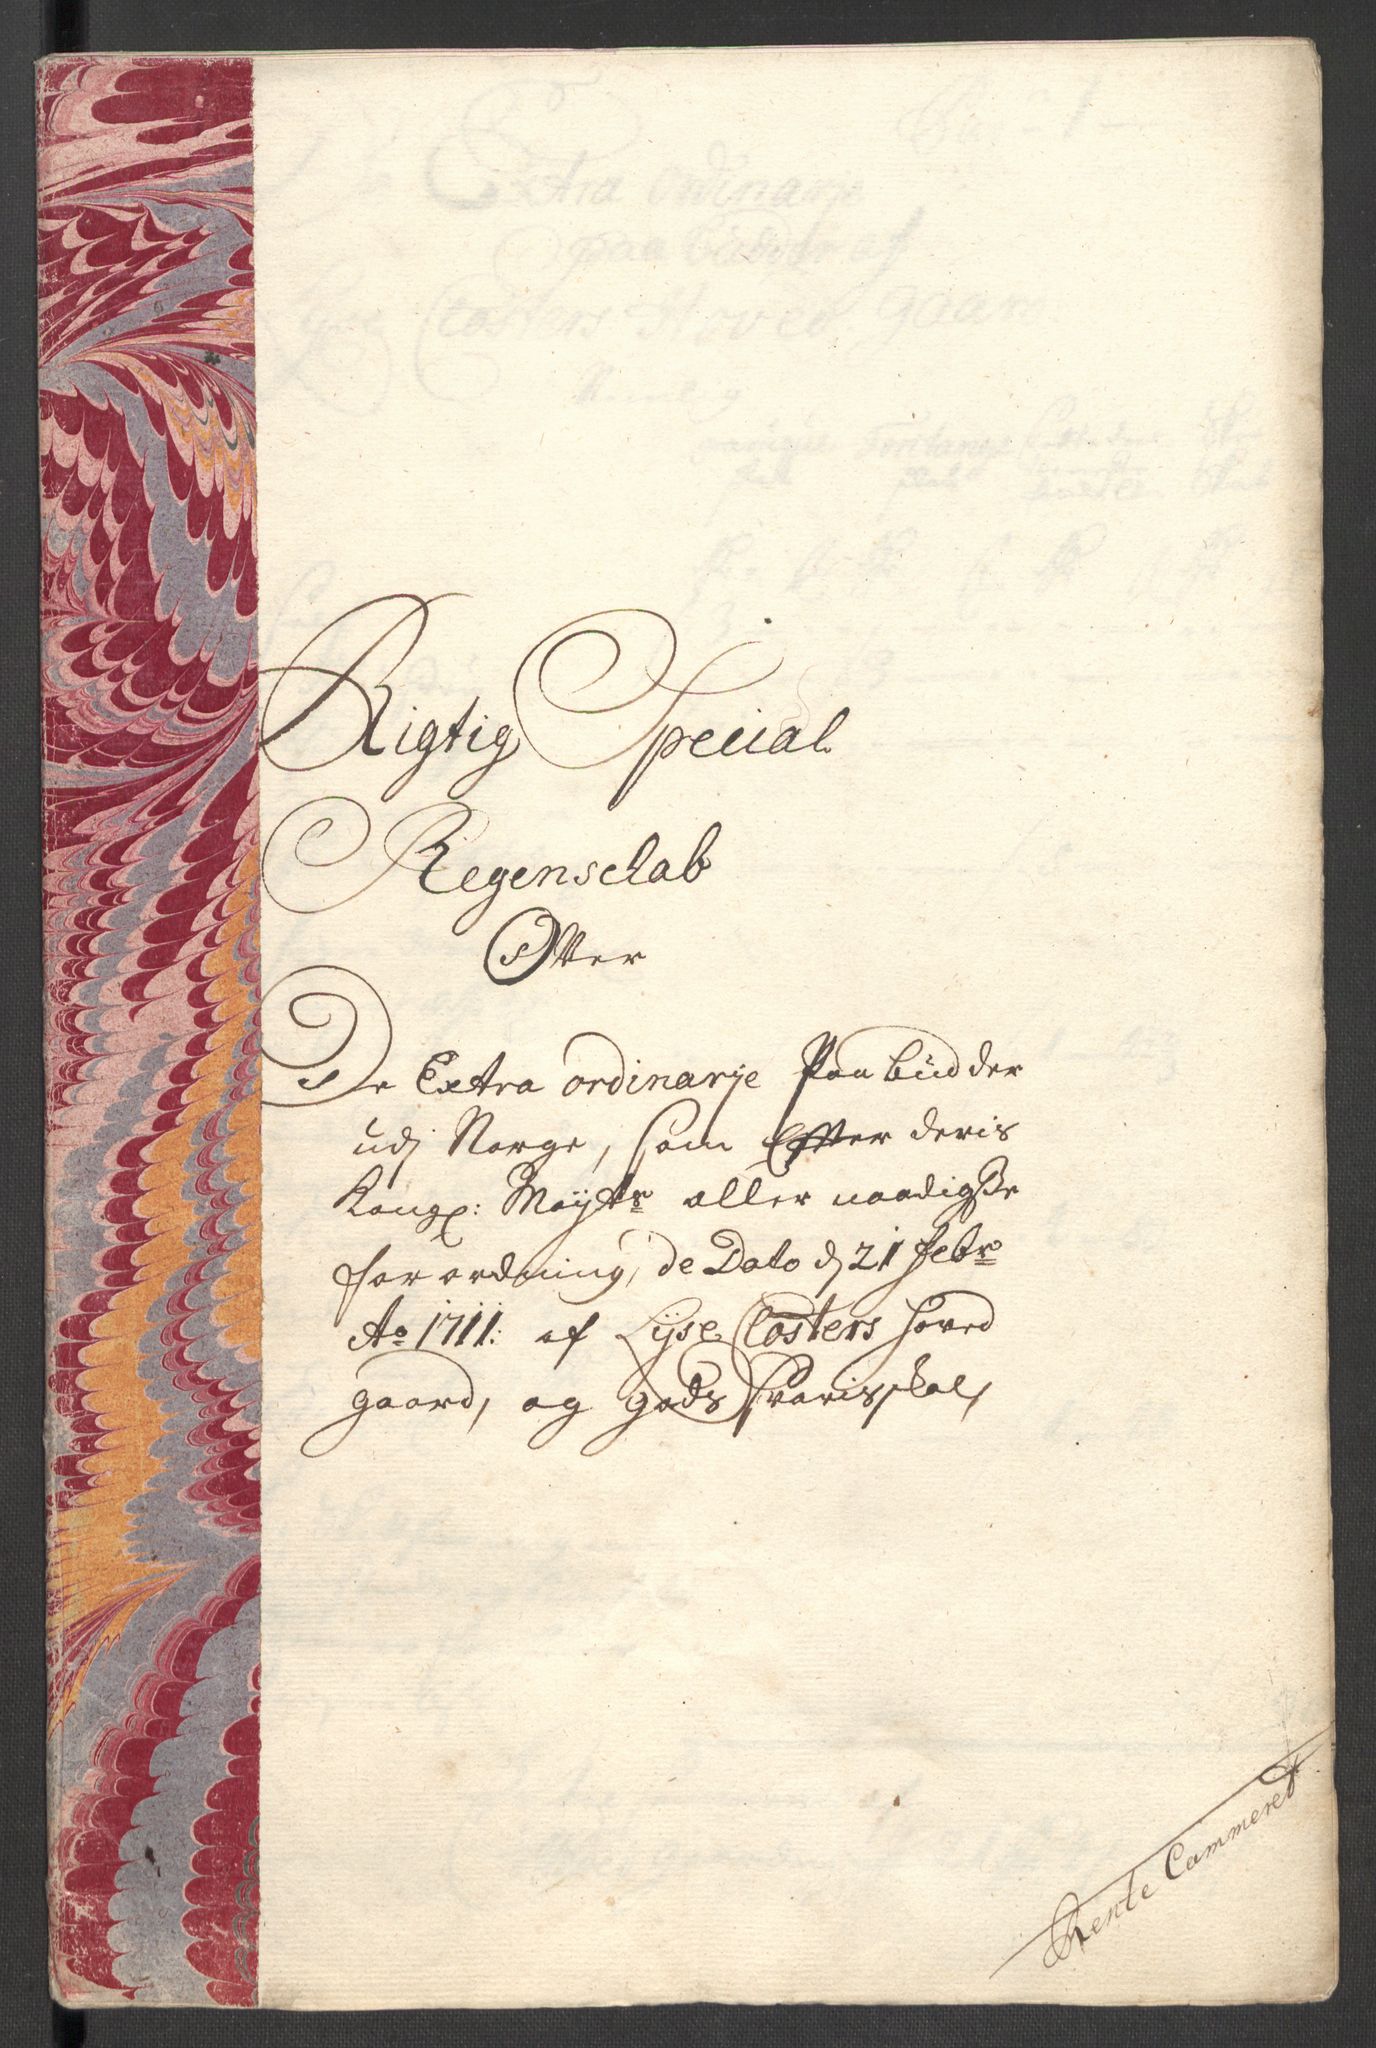 Rigtig Special
Regenschab
Ofver
De Extra ordinarje Paabüdder
udj Norge, som Effter deris
Kongl: Mayts aller naadigste
forordning, de Dato d 21 febr
Ao 1711: af Lijse Closters hoved
gaard, og gods svaris skal,
Rente Cammeret